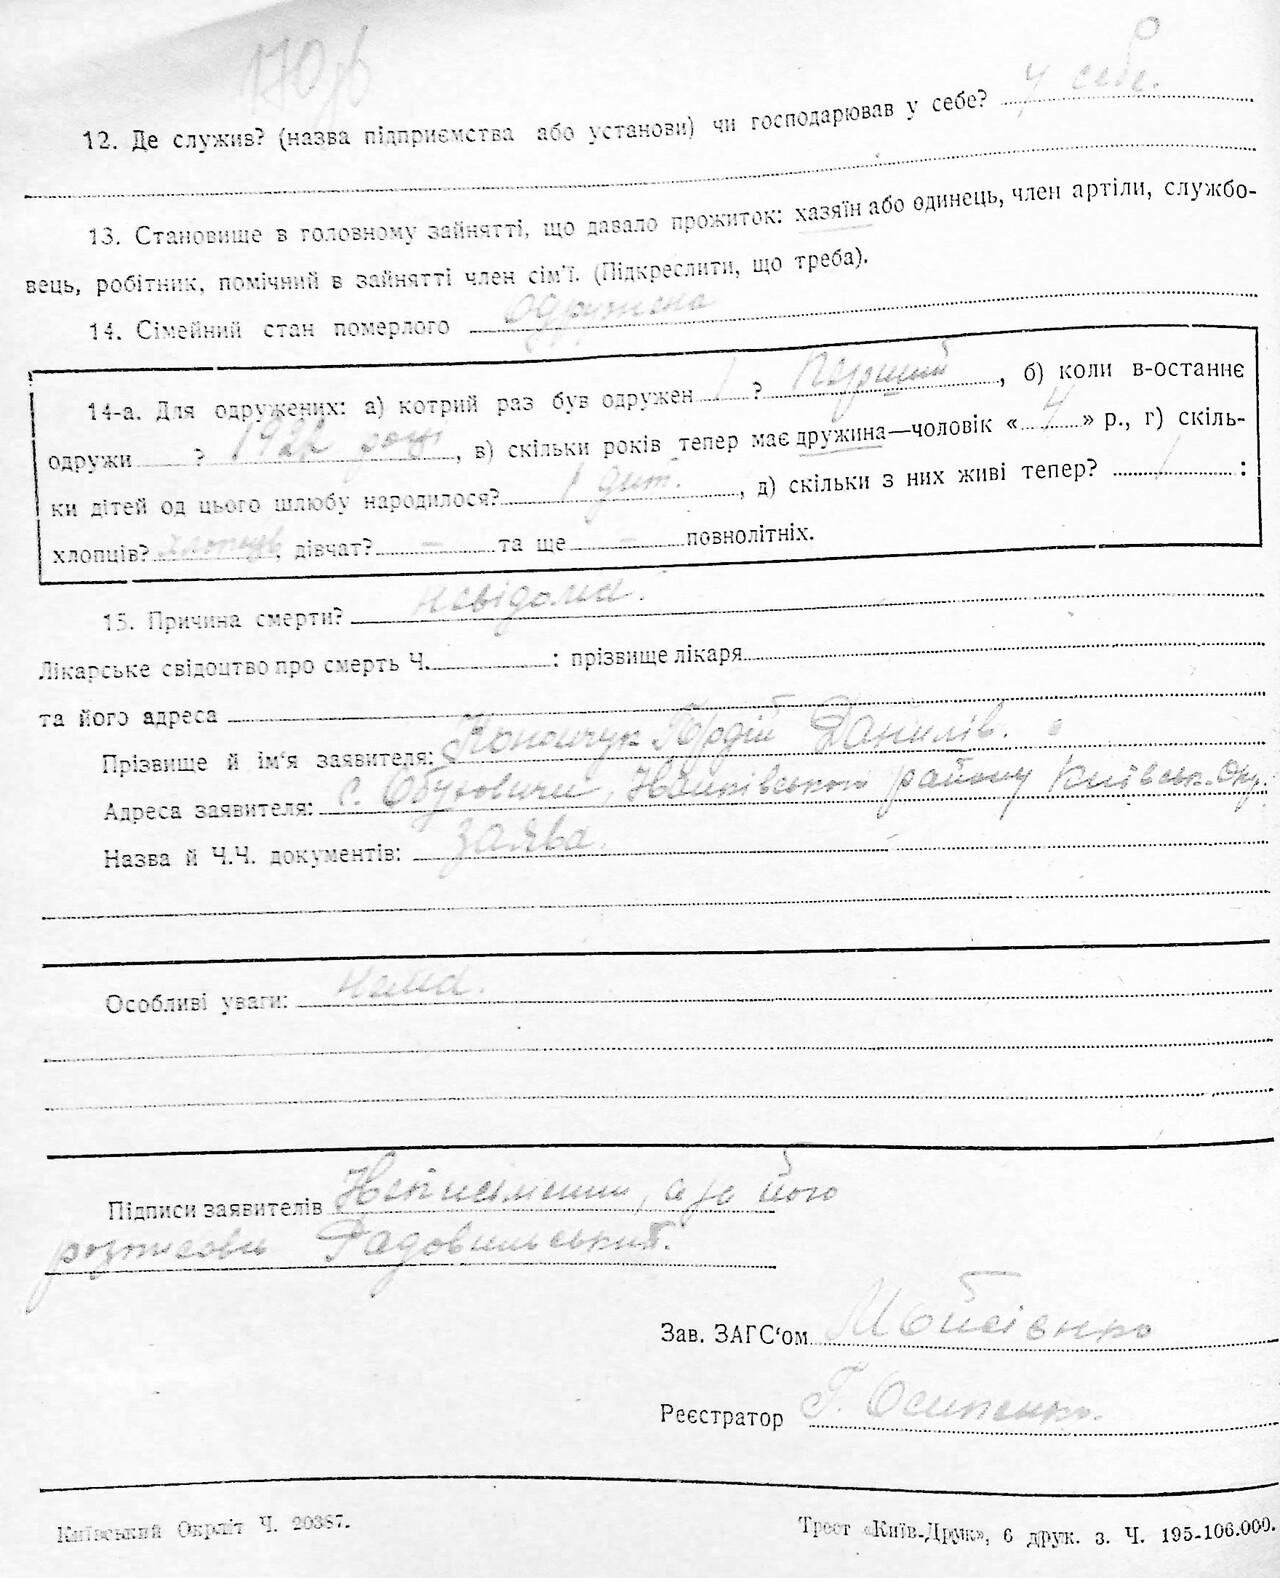 170
12. Де служив? (назва підприємства або установи) чи господарював у себе? у себе.
13. Становище в головному зайнятті, що давало прожиток: хазяїн або одинець, член артіли, службо-
вець, робітник, помічний в зайнятті член сім'ї. (Підкреслити, що треба).
14. Сімейний стан померлого одружена
14-а. Для одружених: а) котрий раз був одружен 1 ? Перший, б) коли в-останнє
одружи ? році, в) скільки років тепер має дружина—чоловік « » р., г) скіль-
ки дітей од цього шлюбу народилося? 1 дит., д) скільки з них живі тепер? 1 :
хлопців? хлопців, дівчат? – та ще – повнолітніх.
15. Причина смерти? невідома.
Лікарське свідоцтво про смерть Ч. : прізвище лікаря
та його адреса
Прізвище й ім'я заявителя: Гордій Данилів.
Адреса заявителя: с. Обуховичи, району Київськ. Окр.
Назва й Ч.Ч. документів: заява.
Особливі уваги: нема.
Підписи заявителів Неписьменний, а за його
розписавсь
Зав. ЗАГС'ом Мойсієнко
Реєстратор Г. Осипенко.
Київський Окрліт Ч. 20387.
Трест «Київ-Друк», 6 друк. з. Ч. 195-106.000.